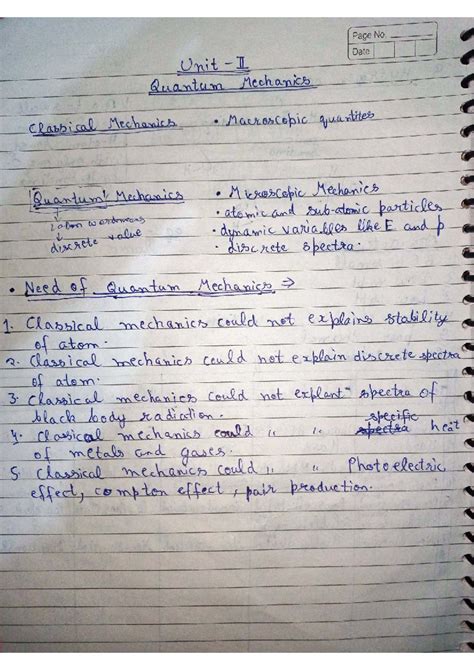 Page No.
Date
Unit - II
Quantum Mechanics
Classical Mechanics • Macroscopic quantites
"Quantum" Mechanics • Microscopic Mechanics
Latin word means • atomic and sub-atomic particles
discrete value • dynamic variables like E and p
• discrete spectra.
• Need of Quantum Mechanics ⇒
1. Classical mechanics could not explains stability
of atom.
2. Classical mechanics could not explain discrete spectra
of atom.
3. Classical mechanics could not explant spectra of
black body radiation.
specific
4. Clasical mechanics could " " spectra heat
of metals and gases.
5. Classical mechanics could " " Photoelectric
effect, compton effect, pair production.